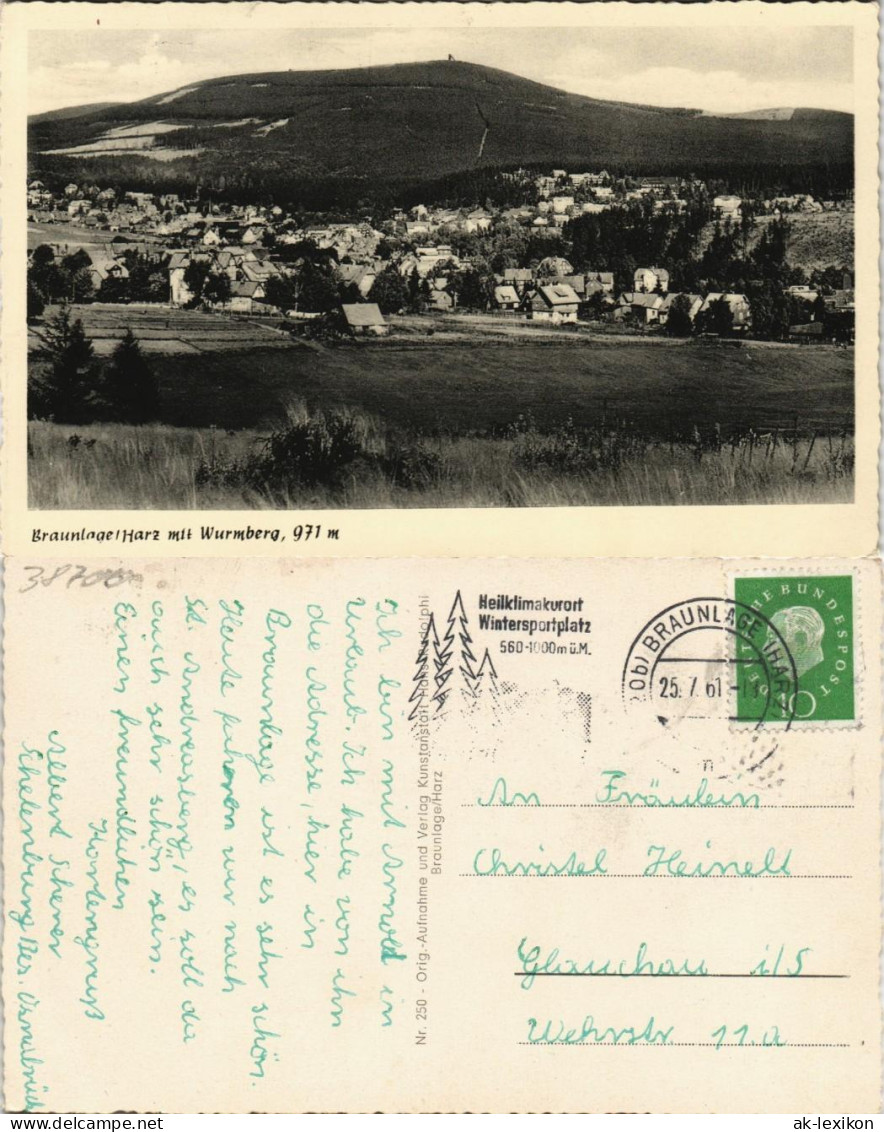 Braunlage/Harz mit Wurmberg, 971 m
38700
Ich bin mit Arnold in
Urlaub. Ich habe von ihn
die Adresse, hier in
Braunlage ist es sehr schön.
Heute fuhren wir nach
St. Andreasberg, es soll da
auch sehr schön sein.
Einen freundlichen
Kartengruß
Albert Scherer
Ehelenburg Bez. Osnabrück
Nr. 250 - Orig.-Aufnahme und Verlag Kunstanstalt Hans Rudolphi
Braunlage/Harz
Heilklimakurort
Wintersportplatz
560-1000m ü.M.
BRAUNLAGE (HARZ)
25.7.61
DEUTSCHE BUNDESPOST
10
An Fräulein
Christel Heinelt
Glauchau i/S
Wehrstr 11.a
ak-lexikon.com